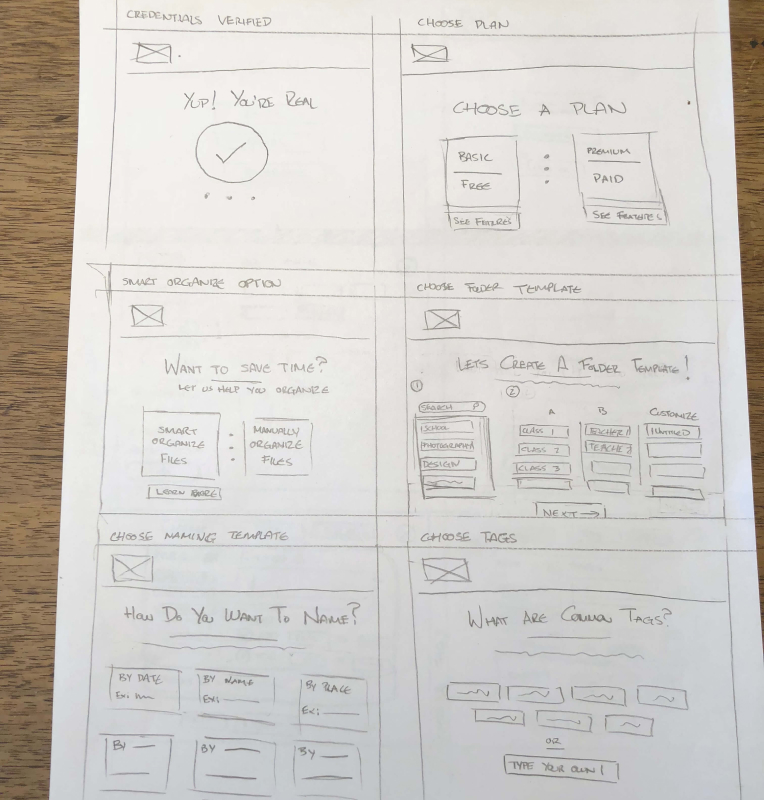 CREDENTIALS VERIFIED
YUP! YOU'RE REAL
CHOOSE PLAN
CHOOSE A PLAN
BASIC
FREE
SEE FEATURES
PREMIUM
PAID
SEE FEATURES
SMART ORGANIZE OPTION
WANT TO SAVE TIME?
LET US HELP YOU ORGANIZE
SMART
ORGANIZE
FILES
LEARN MORE
MANUALLY
ORGANIZE
FILES
CHOOSE FOLDER TEMPLATE
LETS CREATE A FOLDER TEMPLATE!
1
SEARCH
SCHOOL
PHOTOGRAPHY
DESIGN
2
A
CLASS 1
CLASS 2
CLASS 3
B
TEACHER 1
TEACHE 2
CUSTOMIZE
UNTITLED
NEXT →
CHOOSE NAMING TEMPLATE
HOW DO YOU WANT TO NAME?
BY DATE
EX:
BY NAME
EX:
BY PLACE
EX:
BY
BY
BY
CHOOSE TAGS
WHAT ARE COMMON TAGS?
OR
TYPE YOUR OWN